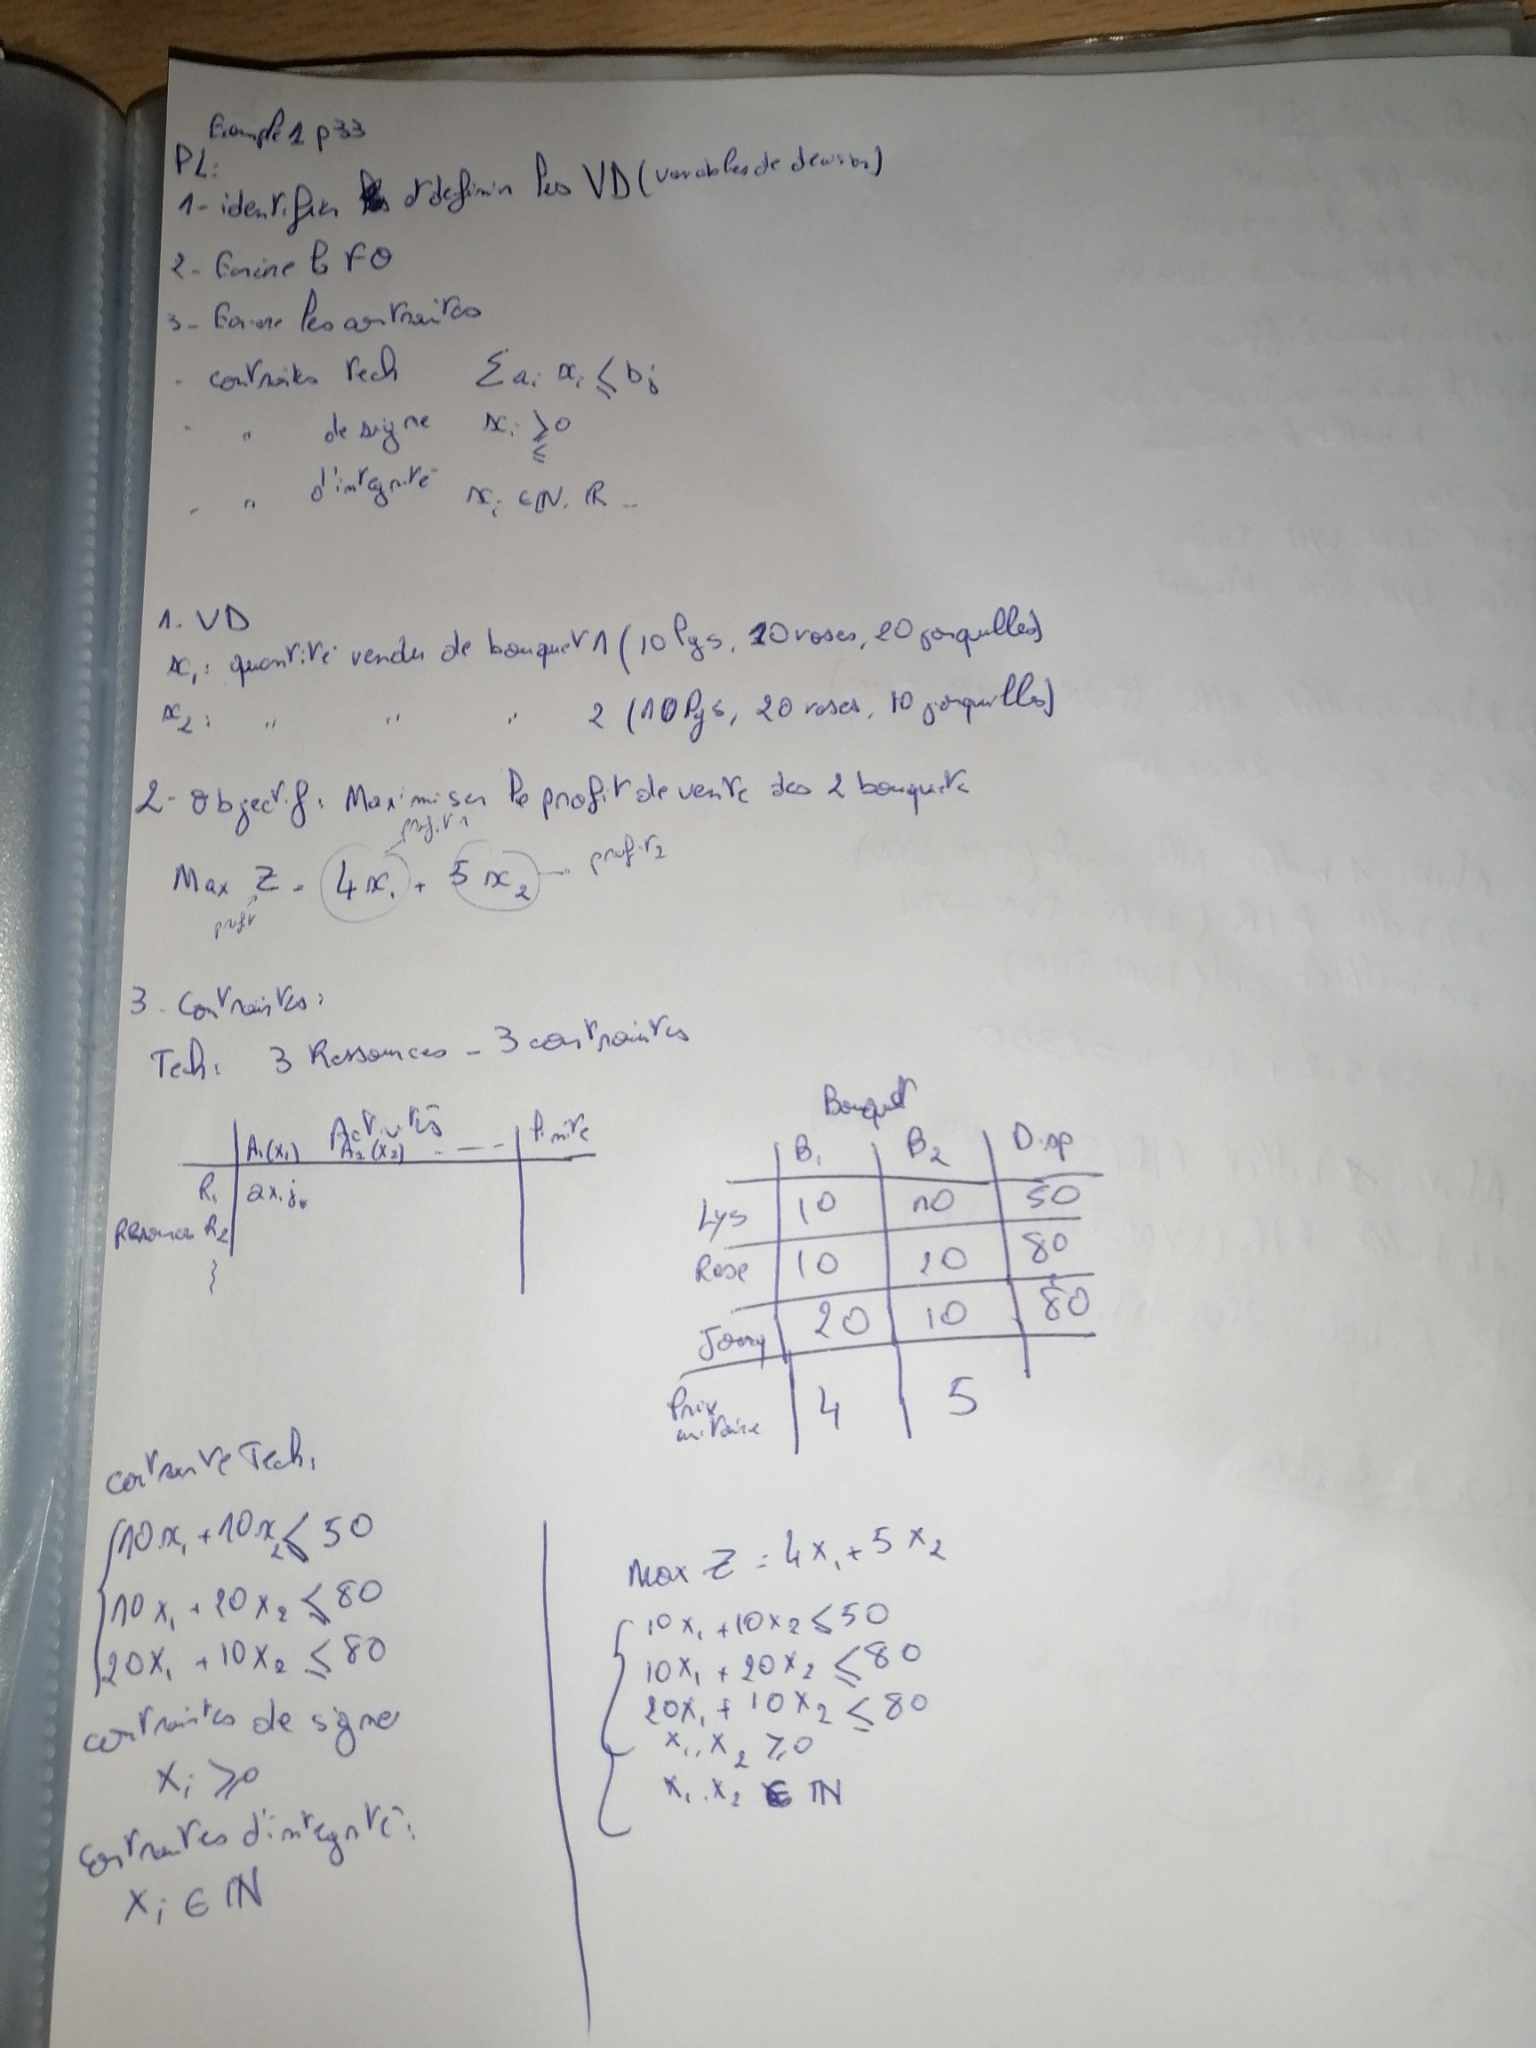 Exemple 1 p33
PL:
1- identifier et définir les VD (variables de décision)
2- Ecrire la FO
3- Ecrire les contraintes
- contraintes tech Σ ai xi ≤ bj
- " de signe xi ≥ 0
≤
- " d'intégrité xi ∈ N, R --
1. VD
x1: quantité vendu de bouquet 1 (10 lys, 10 roses, 20 jonquilles)
x2: " " " 2 (10 lys, 20 roses, 10 jonquilles)
2- Objectif: Maximiser le profit de vente des 2 bouquets
profit 1
Max Z = 4x1 + 5x2 — profit 2
profit
3. Contraintes:
Tech: 3 Ressources - 3 contraintes
Activités limite
A1(x1) A2(x2) ----
R1
Ressources R2
Bouquet
B1 B2 Disp
Lys 10 10 50
Rose 10 20 80
Jonq 20 10 80
Prix unitaire 4 5
contrainte Tech:
10x1 + 10x2 ≤ 50
10x1 + 20x2 ≤ 80
20x1 + 10x2 ≤ 80
contraintes de signe
xi ≥ 0
contraintes d'intégrité:
xi ∈ N
Max Z = 4x1 + 5x2
10x1 + 10x2 ≤ 50
10x1 + 20x2 ≤ 80
20x1 + 10x2 ≤ 80
x1, x2 ≥ 0
x1, x2 ∈ N